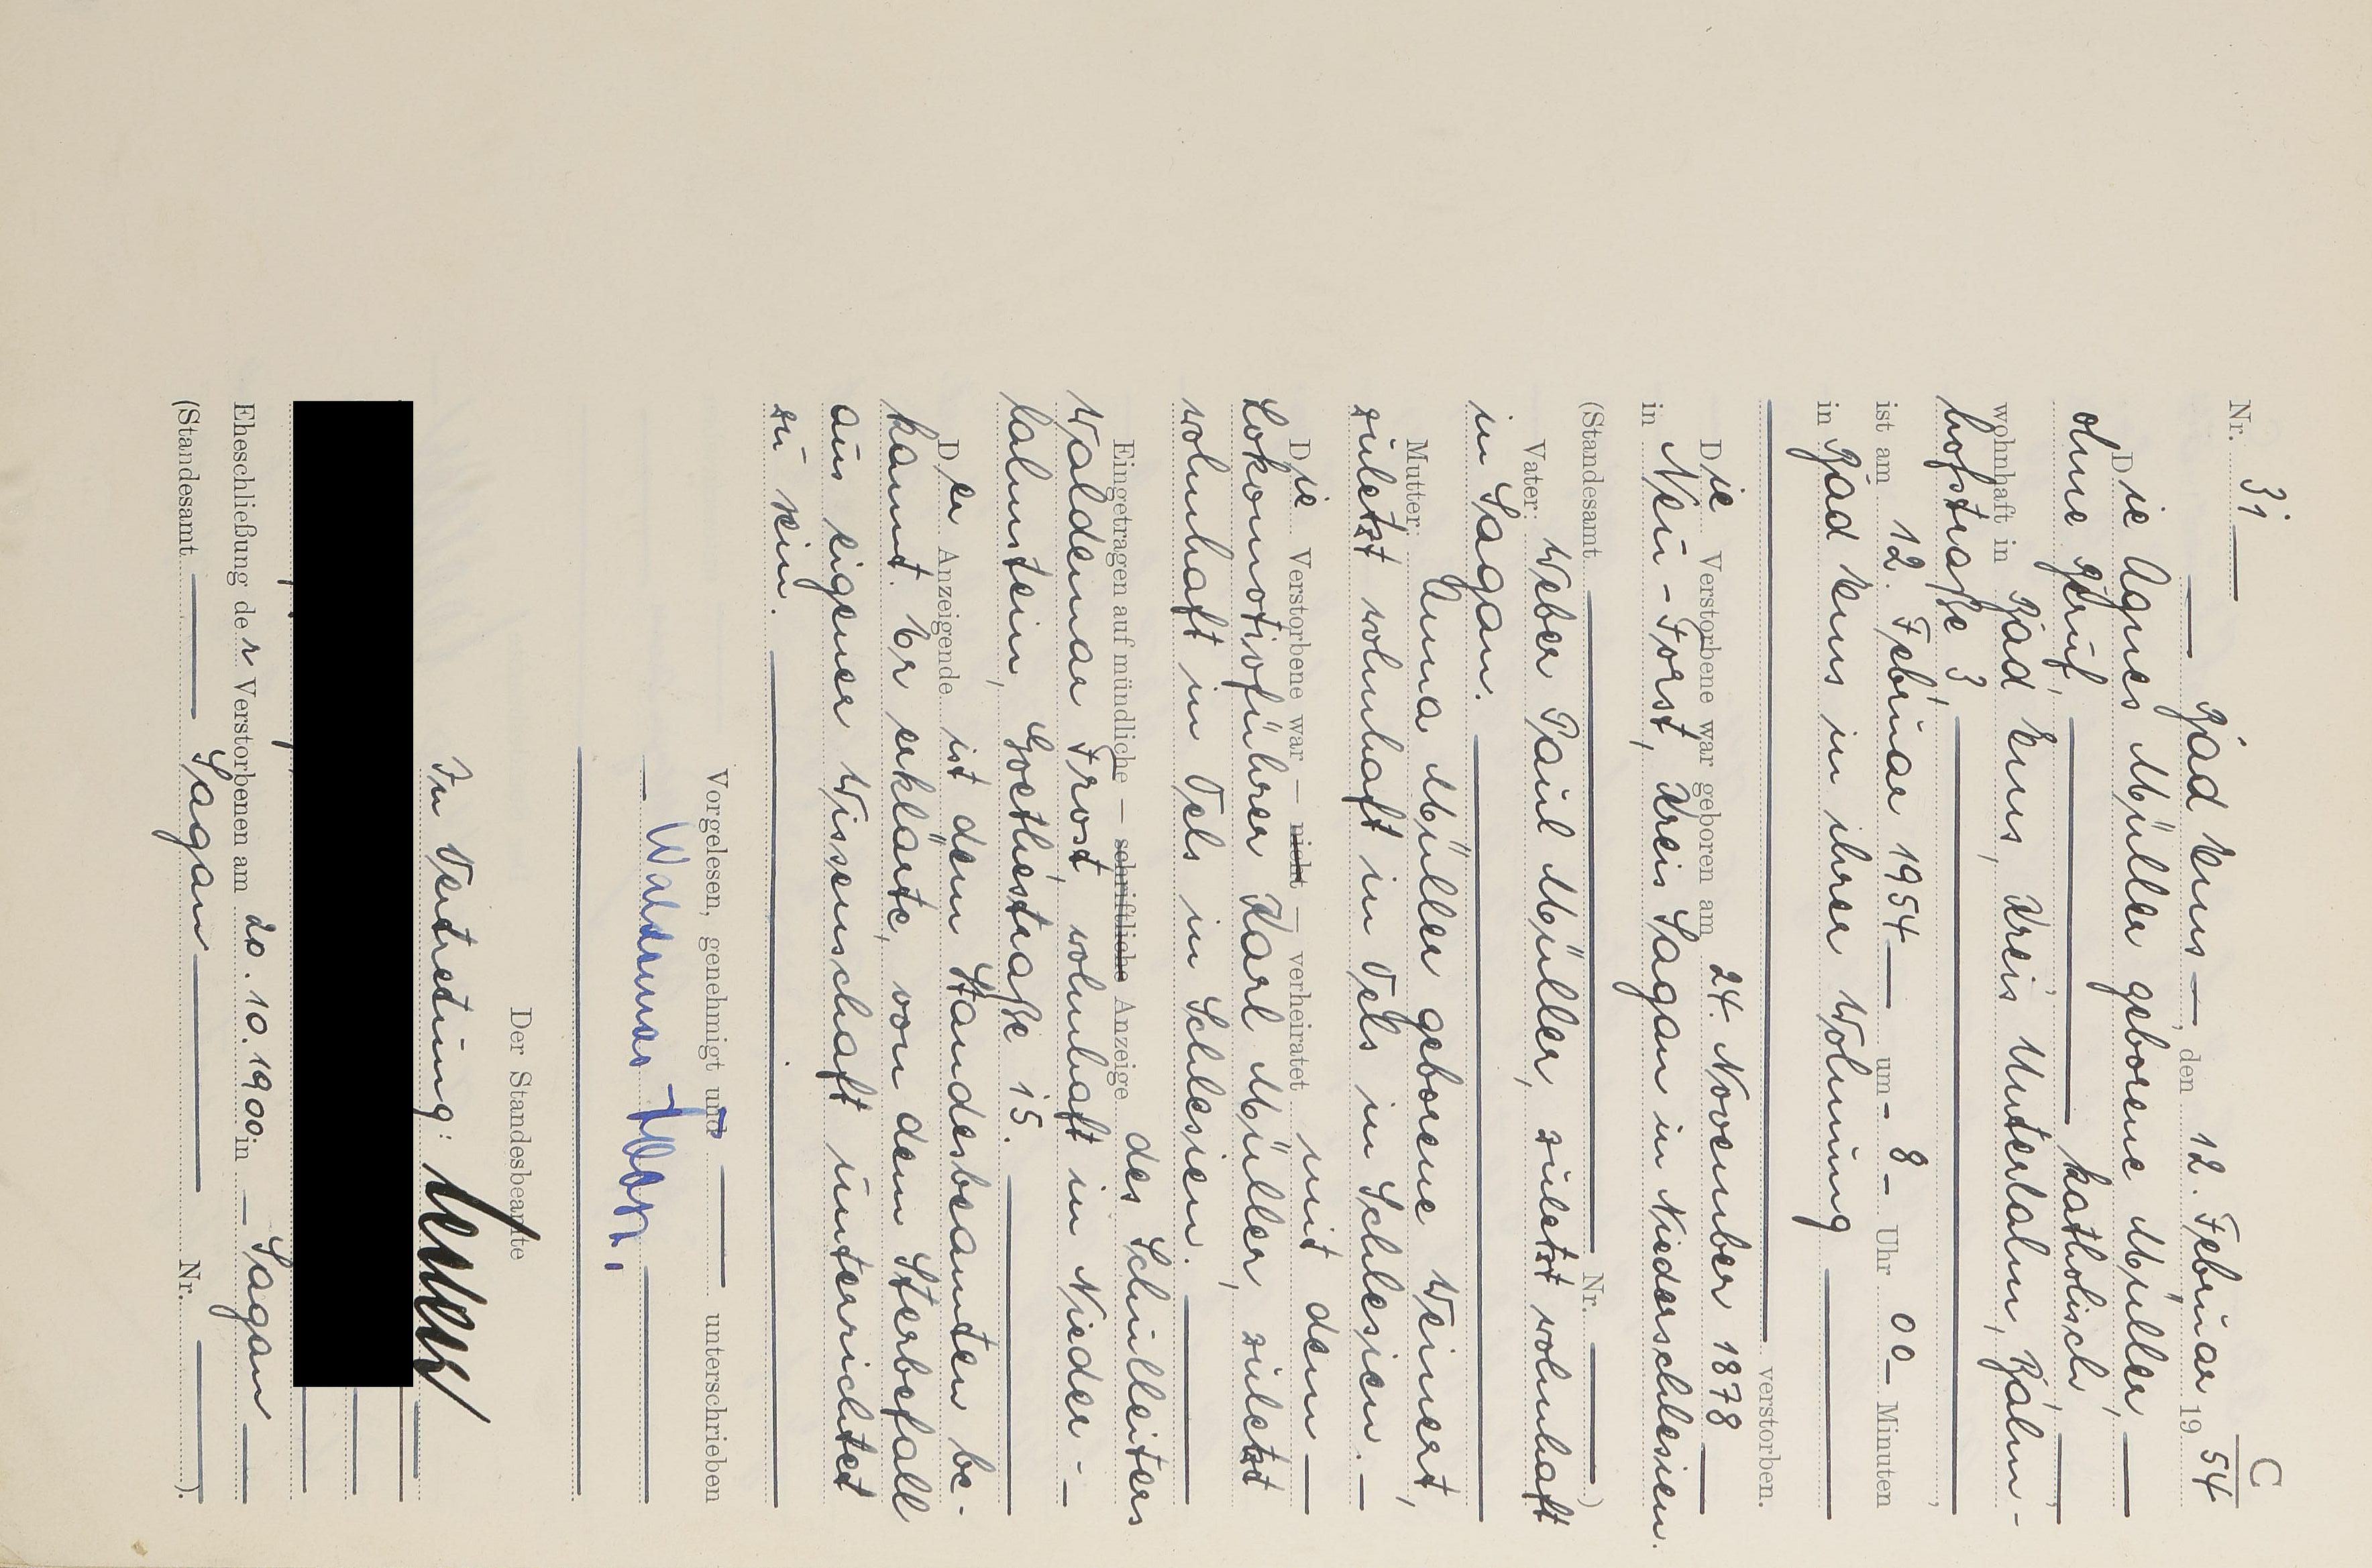 C
Nr. 31
Bad Ems, den 12. Februar 1954
Die Agnes Müller geborene Müller,
ohne Beruf, katholisch,
wohnhaft in Bad Ems, Kreis Unterlahn, Bahn-
hofstraße 3,
ist am 12. Februar 1954 um - 8 - Uhr 00 - Minuten
in Bad Ems in ihrer Wohnung
verstorben.
Die Verstorbene war geboren am 24. November 1878
in Neu-Forst, Kreis Sagan in Niederschlesien.
(Standesamt Nr. )
Vater: Weber Paul Müller, zuletzt wohnhaft
in Sagan.
Mutter: Anna Müller geborene Weinert,
zuletzt wohnhaft in Oels in Schlesien. -
Die Verstorbene war — nicht — verheiratet mit dem
Lokomotivführer Karl Müller, zuletzt
wohnhaft in Oels in Schlesien.
Eingetragen auf mündliche — schriftliche Anzeige des Schulleiters
Waldemar Frost, wohnhaft in Nieder-
lahnstein, Goethestraße 15.
Der Anzeigende ist dem Standesbeamten be-
kannt. Er erklärte, von dem Sterbefall
aus eigener Wissenschaft unterrichtet
zu sein.
Vorgelesen, genehmigt und unterschrieben
Waldemar Frost
Der Standesbeamte
In Vertretung:
Eheschließung der Verstorbenen am 20.10.1900 in Sagan
(Standesamt Sagan Nr. ).